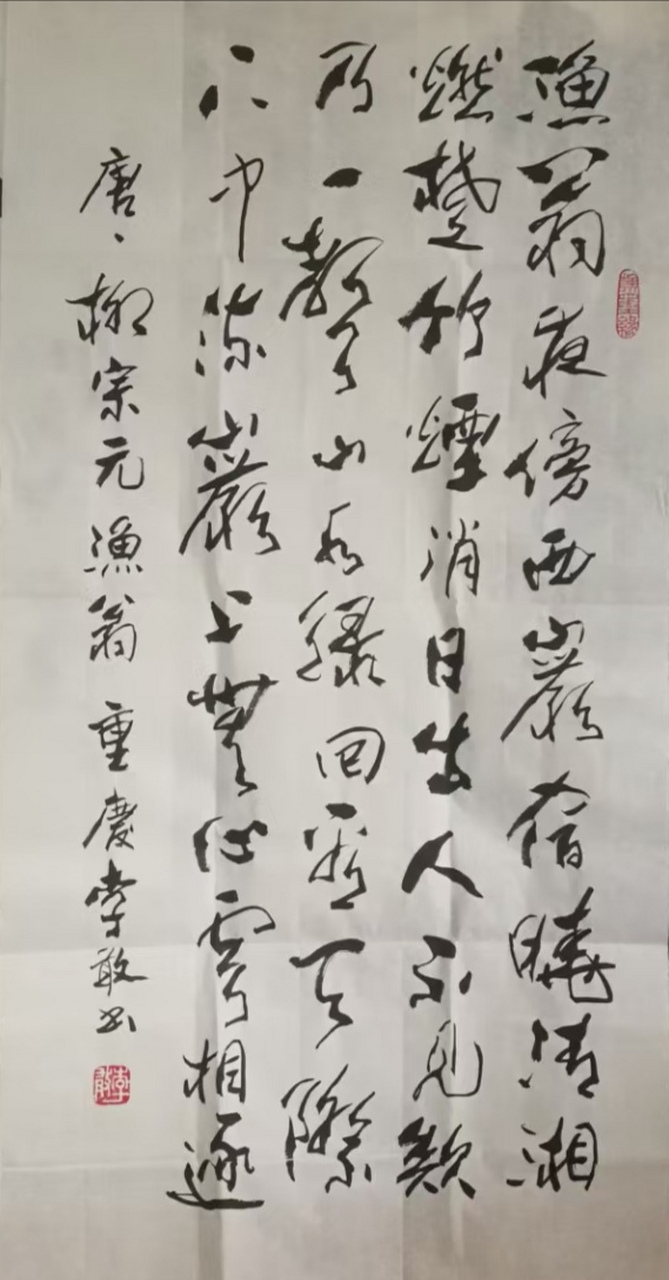 漁翁夜傍西巖宿曉清湘
燃楚竹煙消日出人不見欸
乃一聲山水綠回看天際
下中流巖上無心雲相逐
唐、柳宗元漁翁重慶李敢书
李敢